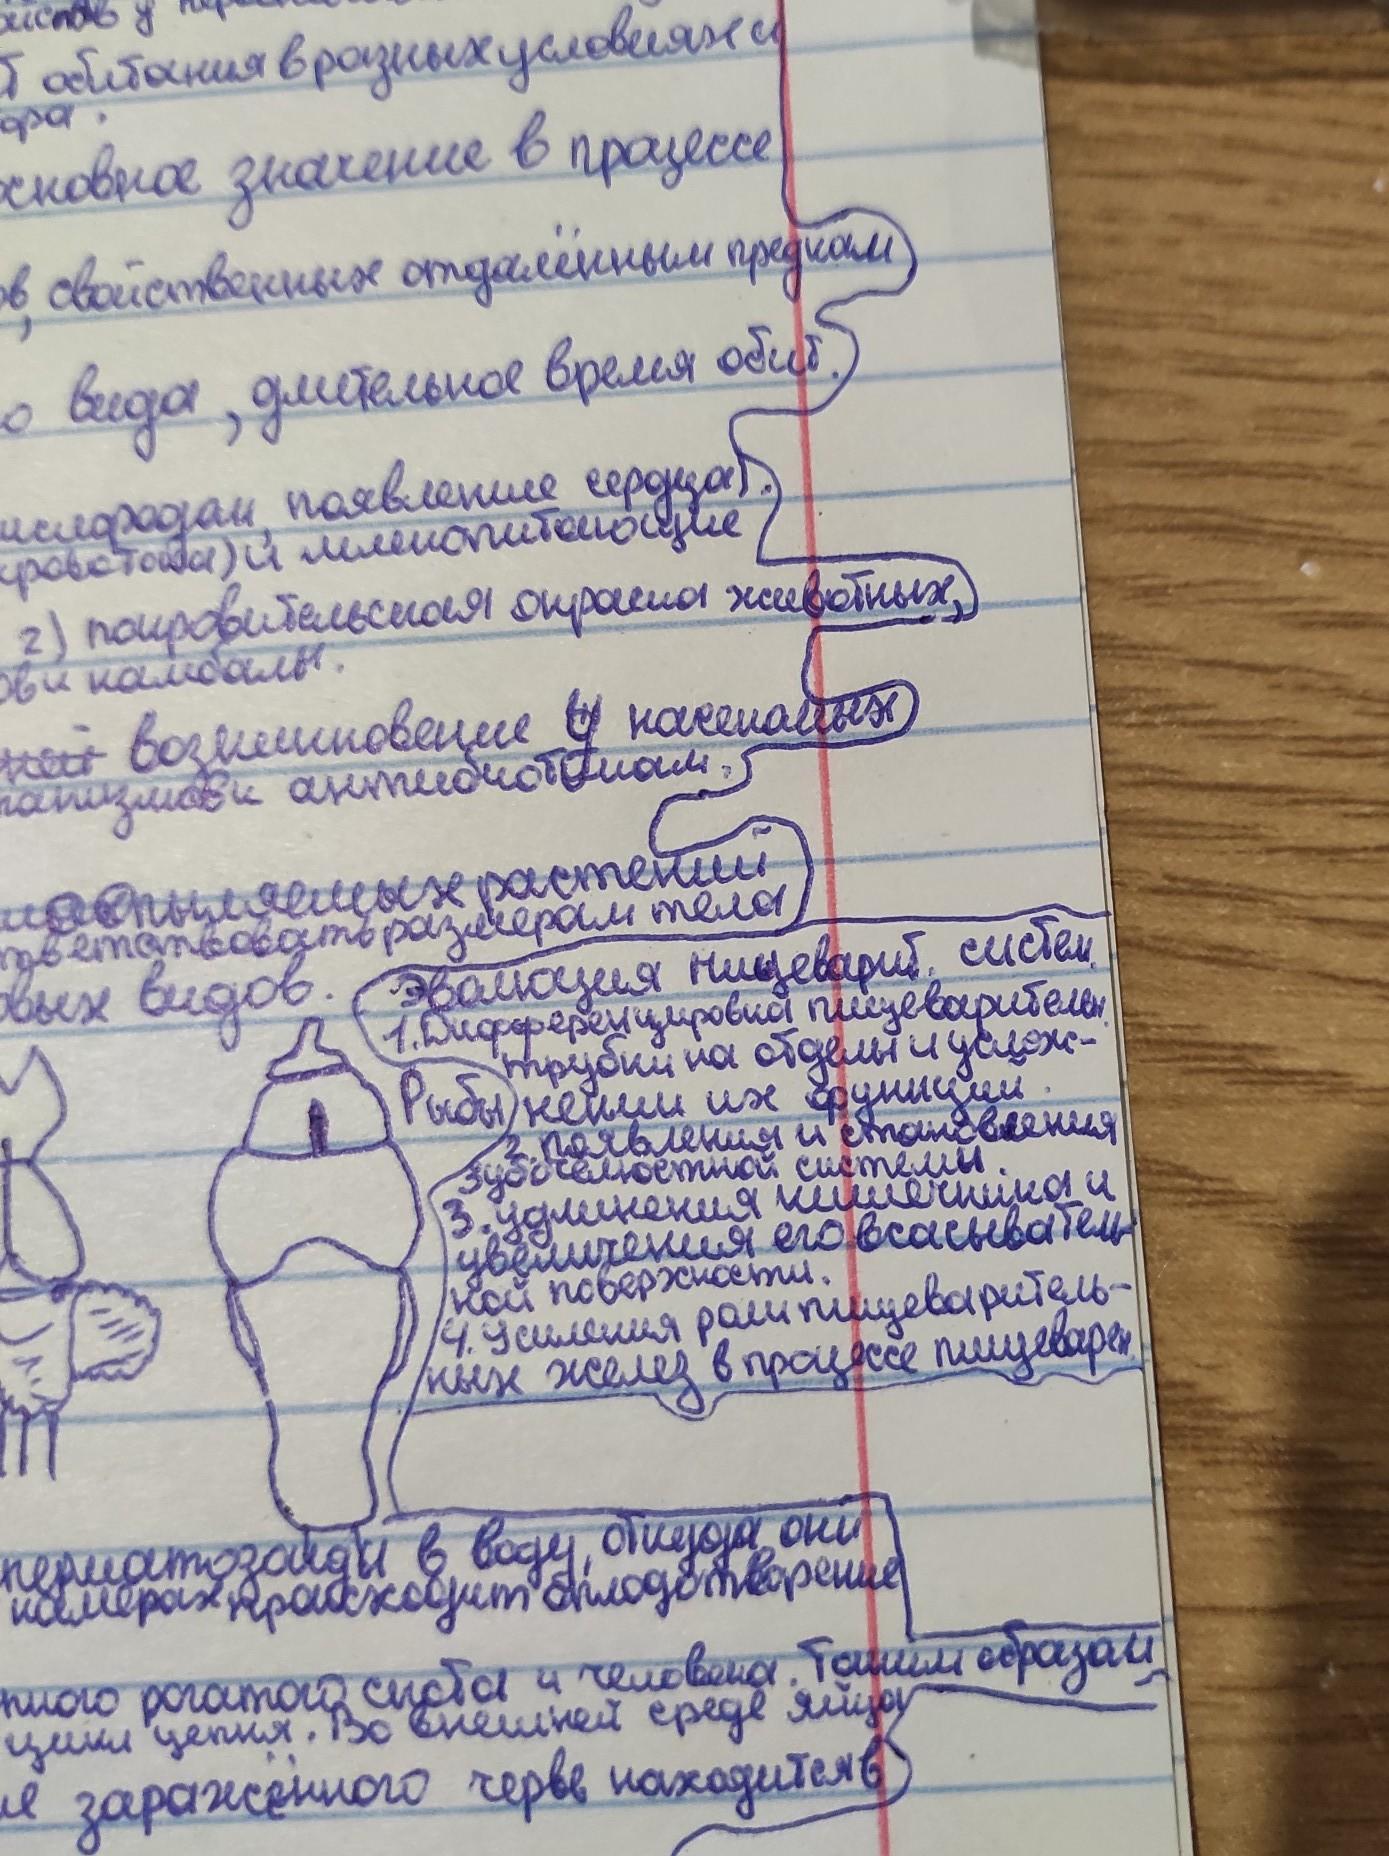 т обитания в разных условиях и
ора.
основное значение в процессе
ов, свойственных отдалённым предкам
о вида, длительное время обит.
ислородом, появление сердца).
кровотока) и млекопитающие
2) покровительская окраска животных,
ови камбалы.
возникновение у насекомых
антибиотикам.
опыляемых растений
тветствовать размерам тела
овых видов.
Эволюция пищеварит. систем.
1. Дифференцировка пищеварительн.
трубки на отделы и услож-
Рыбы
нении их функции.
2. появления и становления
зубочелюстной системы.
3. удлинения кишечника и
увеличения его всасыватель
ной поверхности.
4. Усиления роли пищеваритель-
ных желез в процессе пищеварен.
сперматозоиды в воду, откуда они
камерах происходит оплодотворение
пного рогатого скота и человека. Таким образом,
цикл цепня. Во внешней среде яйца
ие заражённого черве находится в